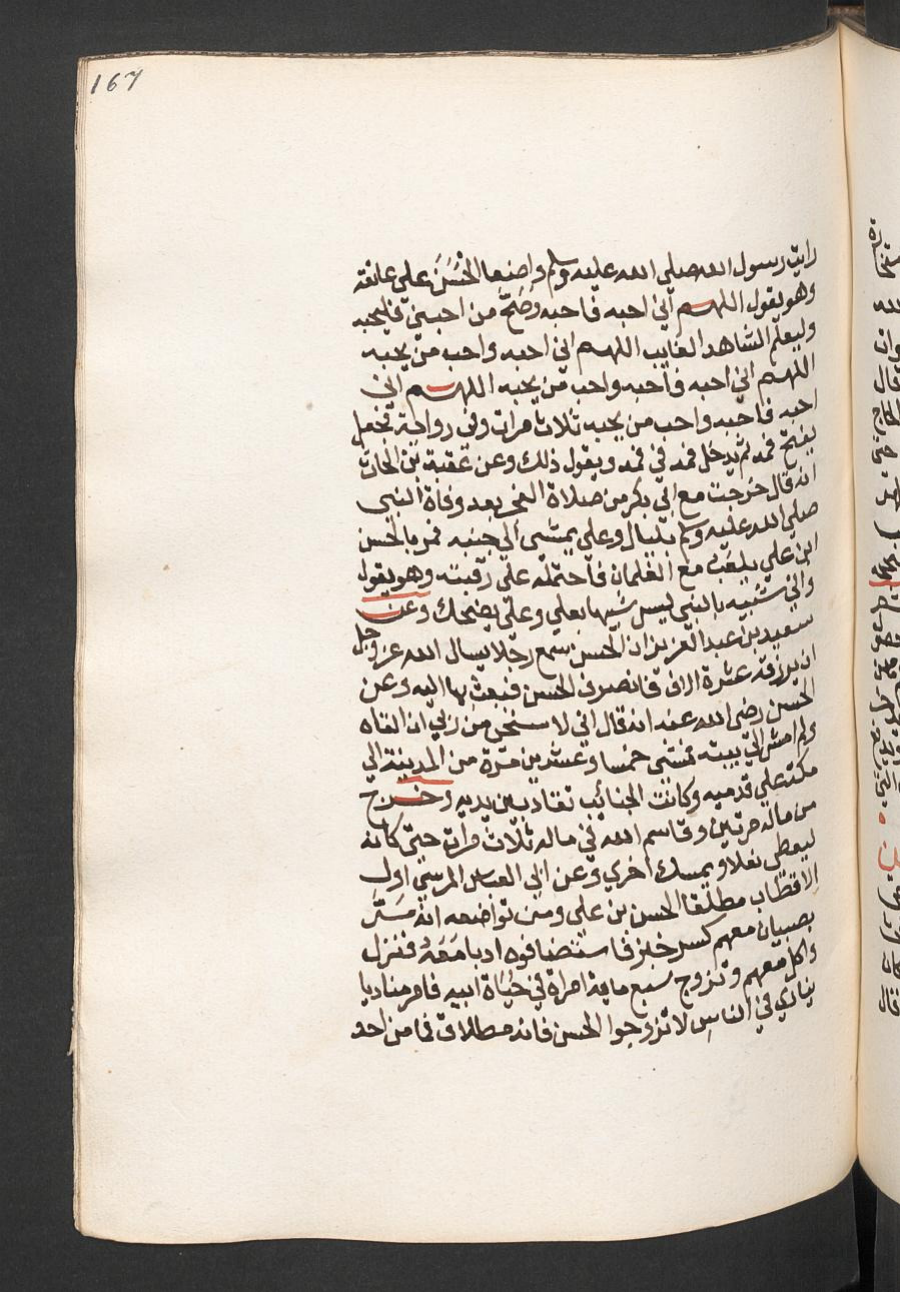 167
رايت رسول الله صلي الله عليه وسلم واضعا الحُسَنَ علي عاتقه
وهو يقول اللهم اني احبه فاحبه وصَحّ من احبني فليحبه
وليعلم الشاهد الغايب اللهم اني احبه واحب من يحبه
اللهم اني احبه فاحبه واحب من يحبه اللهم اني
احبه فاحبه واحب من يحبه ثلاث مرات وفي رواية فجعل
يفتح فمه ثم يدخل فمه في فمه ويقول ذلك وعن عقبة بن الحارث
انه قال خرجت مع ابي بكر من صلاة بعد وفاة النبي
صلي الله عليه وسلم بليال وعلي يمشي الي جنبه فمر بالحسن
ابن علي يلعب مع الغلمان فاحتمله علي رقبته وهو يقول
وابي شبيه بالنبي ليس شبيها بعلي وعلي يضحك وعن
سعيد بن عبد العزيز ان الحسن سمع رجلا يسال الله عز وجل
ان يرزقه عشرة الاف فانصرف الحسن فبعث بها اليه وعن
الحسن رضي الله عنه انه قال اني لاستحي من ربي ان القاه
ولم امش الي بيته فمشي خمسا وعشرين مرّة من المدينة الي
مكة علي قدميه وكانت الجنائب تقاد بين يديه وخرج
من ماله مرتين وقاسم الله في ماله ثلاث مرات حتي كانه
ليعطي نعلا ويمسك اخري وعن ابي العباس المرسي اول
الاقطاب مطلقا الحسن بن علي ومن تواضعه انه مَرَّ
بصبيان معهم كسر خبز فاستضافوه ادبا مَعَهُ فنزل
واكل معهم وتزوج سبع ماية امراة في حيَاة ابيه فامر مناديا
ينادي في الناس لا تزوجوا الحسن فانه مطلاق فما من احد